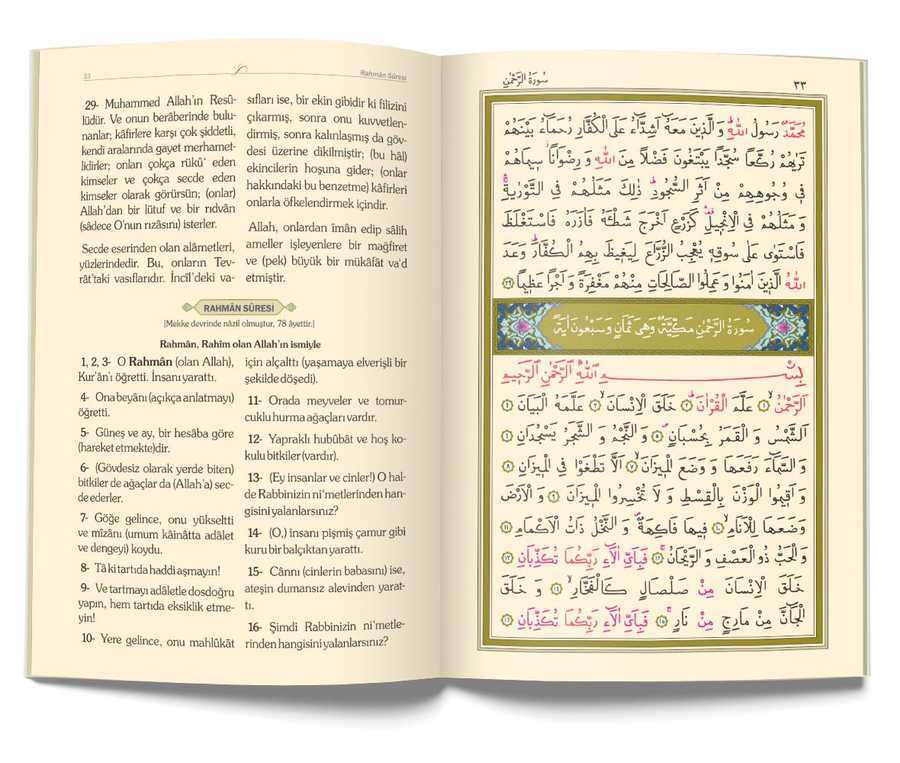 33
Rahmân Sûresi
29- Muhammed Allah'ın Resû-
lüdür. Ve onun berâberinde bulu-
nanlar; kâfirlere karşı çok şiddetli,
kendi aralarında gayet merhamet-
lidirler; onları çokça rükû' eden
kimseler ve çokça secde eden
kimseler olarak görürsün; (onlar)
Allah'dan bir lütuf ve bir rıdvân
(sâdece O'nun rızâsını) isterler.
Secde eserinden olan alâmetleri,
yüzlerindedir. Bu, onların Tev-
rât'taki vasıflarıdır. İncîl'deki va-
sıfları ise, bir ekin gibidir ki filizini
çıkarmış, sonra onu kuvvetlen-
dirmiş, sonra kalınlaşmış da göv-
desi üzerine dikilmiştir; (bu hâl)
ekincilerin hoşuna gider; (onlar
hakkındaki bu benzetme) kâfirleri
onlarla öfkelendirmek içindir.
Allah, onlardan îmân edip sâlih
ameller işleyenlere bir mağfiret
ve (pek) büyük bir mükâfât va'd
etmiştir.
RAHMÂN SÛRESİ
[Mekke devrinde nâzil olmuştur, 78 âyettir.]
Rahmân, Rahîm olan Allah'ın ismiyle
1, 2, 3- O Rahmân (olan Allah),
Kur'ân'ı öğretti. İnsanı yarattı.
4- Ona beyânı (açıkça anlatmayı)
öğretti.
5- Güneş ve ay, bir hesâba göre
(hareket etmekte)dir.
6- (Gövdesiz olarak yerde biten)
bitkiler de ağaçlar da (Allah'a) sec-
de ederler.
7- Göğe gelince, onu yükseltti
ve mîzânı (umum kâinâtta adâlet
ve dengeyi) koydu.
8- Tâ ki tartıda haddi aşmayın!
9- Ve tartmayı adâletle dosdoğru
yapın, hem tartıda eksiklik etme-
yin!
10- Yere gelince, onu mahlûkāt
için alçalttı (yaşamaya elverişli bir
şekilde döşedi).
11- Orada meyveler ve tomur-
cuklu hurma ağaçları vardır.
12- Yapraklı hubûbât ve hoş ko-
kulu bitkiler (vardır).
13- (Ey insanlar ve cinler!) O hal-
de Rabbinizin ni'metlerinden han-
gisini yalanlarsınız?
14- (O,) insanı pişmiş çamur gibi
kuru bir balçıktan yarattı.
15- Cânnı (cinlerin babasını) ise,
ateşin dumansız alevinden yarat-
tı.
16- Şimdi Rabbinizin ni'metle-
rinden hangisini yalanlarsınız?
سُورَةُ الرَّحْمٰنِ
٣٣
مُحَمَّدٌ رَسُولُ اللّٰهِ وَالَّذِينَ مَعَهُٓ اَشِدَّٓاءُ عَلَى الْكُفَّارِ رُحَمَٓاءُ بَيْنَهُمْ
تَرٰيهُمْ رُكَّعًا سُجَّدًا يَبْتَغُونَ فَضْلًا مِنَ اللّٰهِ وَرِضْوَانًا سِيمَاهُمْ
فِى وُجُوهِهِمْ مِنْ اَثَرِ السُّجُودِ ذٰلِكَ مَثَلُهُمْ فِى التَّوْرٰيةِ
وَمَثَلُهُمْ فِى الْاِنْجِيلِ كَزَرْعٍ اَخْرَجَ شَطْئَهُ فَاٰزَرَهُ فَاسْتَغْلَظَ
فَاسْتَوٰى عَلٰى سُوقِهِ يُعْجِبُ الزُّرَّاعَ لِيَغِيظَ بِهِمُ الْكُفَّارَ وَعَدَ
اللّٰهُ الَّذِينَ اٰمَنُوا وَعَمِلُوا الصَّالِحَاتِ مِنْهُمْ مَغْفِرَةً وَاَجْرًا عَظِيمًا ٢٩
سُورَةُ الرَّحْمٰنِ مَكِّيَّةٌ وَهِىَ ثَمَانٍ وَسَبْعُونَ اٰيَةً
بِسْمِ اللّٰهِ الرَّحْمٰنِ الرَّحِيمِ
اَلرَّحْمٰنُ ١ عَلَّمَ الْقُرْاٰنَ ٢ خَلَقَ الْاِنْسَانَ ٣ عَلَّمَهُ الْبَيَانَ ٤
اَلشَّمْسُ وَالْقَمَرُ بِحُسْبَانٍ ٥ وَالنَّجْمُ وَالشَّجَرُ يَسْجُدَانِ ٦
وَالسَّمَٓاءَ رَفَعَهَا وَوَضَعَ الْمِيزَانَ ٧ اَلَّا تَطْغَوْا فِى الْمِيزَانِ ٨
وَاَقِيمُوا الْوَزْنَ بِالْقِسْطِ وَلَا تُخْسِرُوا الْمِيزَانَ ٩ وَالْاَرْضَ
وَضَعَهَا لِلْاَنَامِ ١٠ فِيهَا فَاكِهَةٌ وَالنَّخْلُ ذَاتُ الْاَكْمَامِ ١١
وَالْحَبُّ ذُوالْعَصْفِ وَالرَّيْحَانُ ١٢ فَبِاَىِّ اٰلَٓاءِ رَبِّكُمَا تُكَذِّبَانِ ١٣
خَلَقَ الْاِنْسَانَ مِنْ صَلْصَالٍ كَالْفَخَّارِ ١٤ وَخَلَقَ
الْجَٓانَّ مِنْ مَارِجٍ مِنْ نَارٍ ١٥ فَبِاَىِّ اٰلَٓاءِ رَبِّكُمَا تُكَذِّبَانِ ١٦